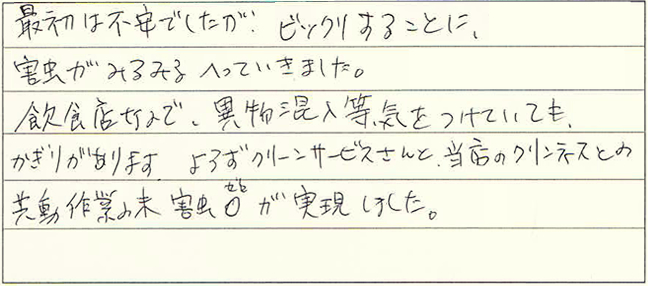 最初は不安でしたが、ビックリすることに、
害虫がみるみるへっていきました。
飲食店なので、異物混入等気をつけていても、
かぎりがあります。よろずクリーンサービスさんと、当店のクリンネスとの
共動作業の末 害虫0(ゼロ)が実現しました。